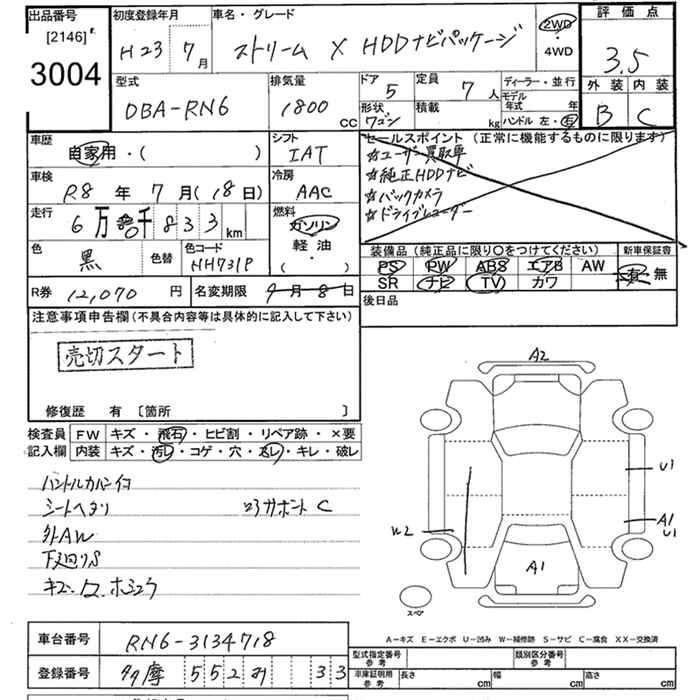 出品番号 初度登録年月 車名・グレード 2WD 評価点
[2146]
3004 H23 7月 ストリーム X HDDナビパッケージ ・4WD 3.5
型式 排気量 ドア 5 定員 7人 ディーラー・並行 外装 内装
DBA-RN6 1800 CC 形状 ワゴン 積載 kg モデル年式 年 ハンドル 左・右 B C
車歴 シフト セールスポイント (正常に機能するものに限ります)
自家用・( ) IAT ☆ユーザー買取車
車検 冷房 ☆純正HDDナビ
R8年 7月(18日) AAC ☆バックカメラ
走行 燃料 ☆ドライブレコーダー
6万 0千833km ガソリン
色 色替 色コード 軽油 装備品(純正品に限り○をつけてください) 新車保証書
黒 NH731P ・( ) PS PW ABS エアB AW 有・無
R券 12,070円 名変期限 9月8日 SR ナビ TV カワ
注意事項申告欄(不具合内容等は具体的に記入して下さい) 後日品
売切スタート
修復歴 有 〔箇所 〕
検査員 FW キズ・飛石・ヒビ割・リペア跡・×要
記入欄 内装 キズ・汚レ・コゲ・穴・スレ・キレ・破レ
A2
ハンドルカバーイヨ
シートヘタリ コアサポート C
U1
外AW
W2 A1 U1
下廻りS
A1
スペア
A-キズ E-エクボ U-凹み W-補修跡 S-サビ C-腐食 XX-交換済
車台番号 RN6-3134718
型式指定番号 参考 類別区分番号 参考
登録番号 多摩 552 33
車庫証明用 参考 長さ cm 幅 cm 高さ cm